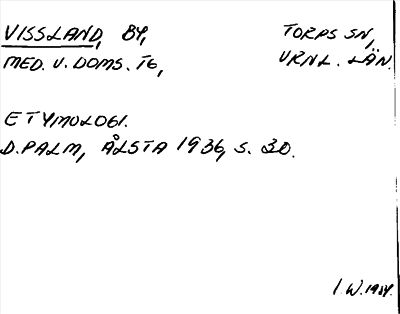 VISSLAND, BY, TORPS SN,
MED. V. DOMS. TG, VRNL. LÄN.
ETYMOLOGI.
D. PALM, ÅLSTA 1936, S. 30.
I.W. 1984.